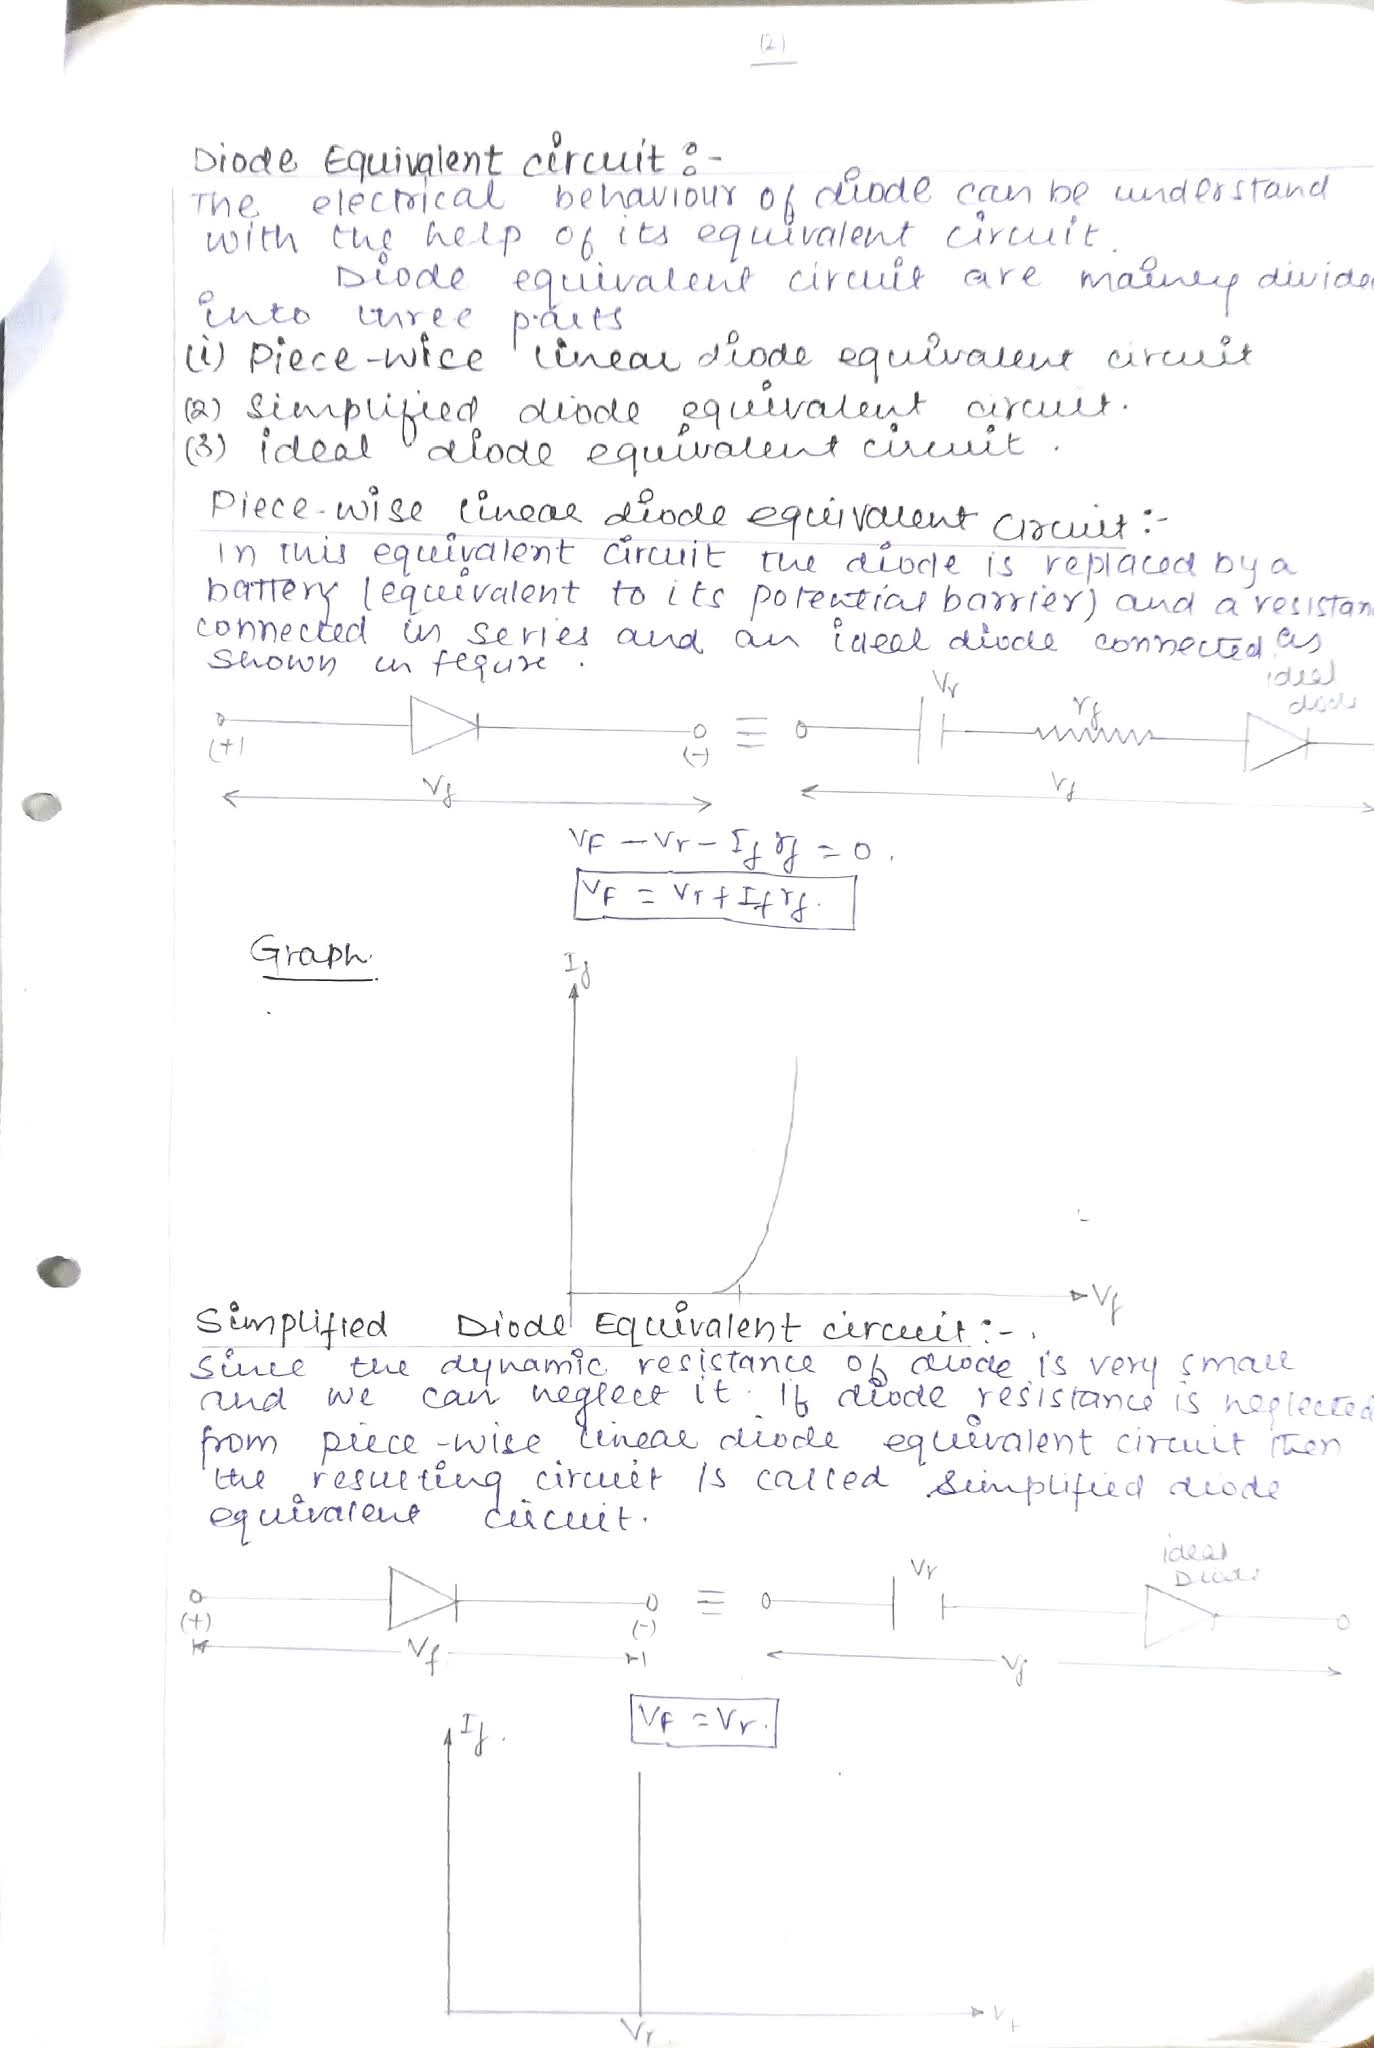 (2)
Diode Equivalent circuit :-
The electrical behaviour of diode can be understand
with the help of its equivalent circuit.
Diode equivalent circuit are mainey divide
into three parts
(i) Piece-wice linear diode equivalent circuit
(2) simplified diode equivalent circuit.
(3) ideal diode equivalent circuit.
Piece-wise linear diode equivalent circuit :-
In this equivalent circuit the diode is replaced by a
battery (equivalent to its potential barrier) and a resistan
connected in series and an ideal diode connected as
shown in fequre.
Vr rf ideal diode
(+) (-) ≡
Vf Vf
VF - Vr - If rf = 0.
VF = Vr + If rf.
Graph.
If
Vf
Simplified Diode Equivalent circuit :-
Since the dynamic resistance of diode is very small
and we can neglect it. If diode resistance is neglected
from piece-wise linear diode equivalent circuit then
the resulting circuit is called simplified diode
equivalent circuit.
Vr ideal Diode
(+) (-) ≡
Vf Vf
VF = Vr.
If.
Vr Vf